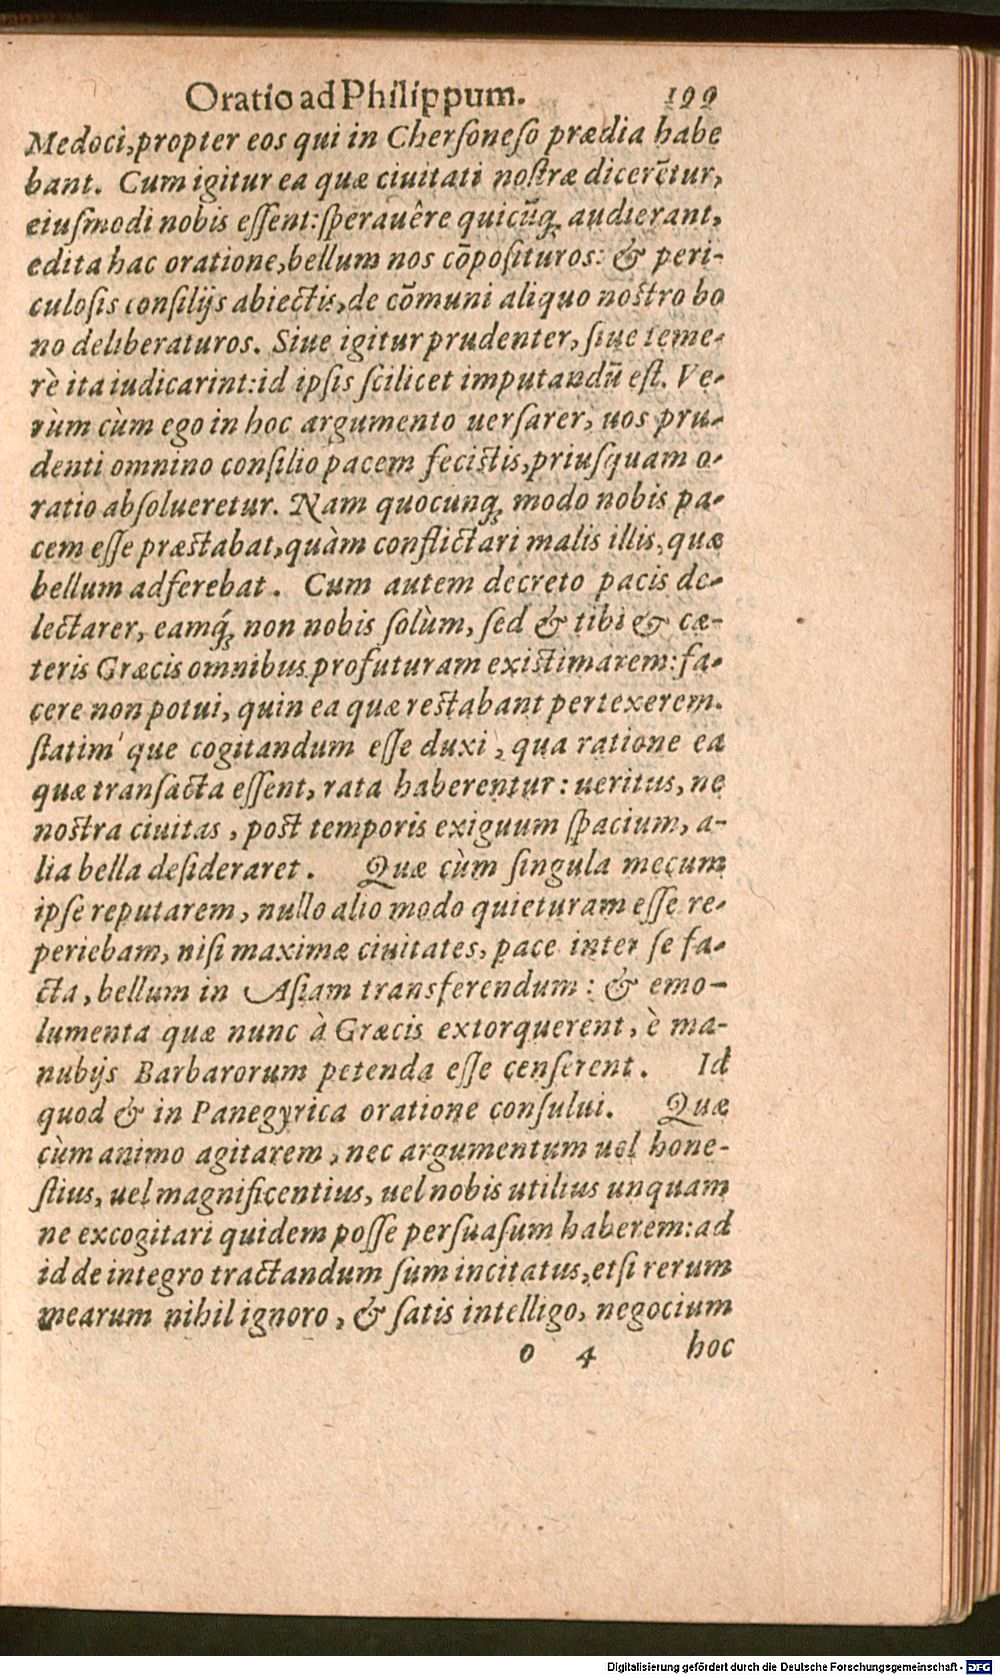 Oratio ad Philippum. 199
Medoci, propter eos qui in Chersoneso prædia habe
bant. Cum igitur ea quæ ciuitati nostræ dicerẽtur,
eiusmodi nobis essent: sperauêre quicũq; audierant,
edita hac oratione, bellum nos cõposituros: & peri-
culosis consilijs abiectis, de cõmuni aliquo nostro bo
no deliberaturos. Siue igitur prudenter, siue teme-
rè ita iudicarint: id ipsis scilicet imputandũ est. Ve-
rùm cùm ego in hoc argumento uersarer, uos pru-
denti omnino consilio pacem fecistis, priusquam o-
ratio absolueretur. Nam quocunq; modo nobis pa-
cem esse præstabat, quàm conflictari malis illis, quæ
bellum adferebat. Cum autem decreto pacis de-
lectarer, eamq́; non nobis solùm, sed & tibi & cæ-
teris Græcis omnibus profuturam existimarem: fa-
cere non potui, quin ea quæ restabant pertexerem.
statim' que cogitandum esse duxi, qua ratione ea
quæ transacta essent, rata haberentur: ueritus, ne
nostra ciuitas, post temporis exiguum spacium, a-
lia bella desideraret. Quæ cùm singula mecum
ipse reputarem, nullo alio modo quieturam esse re-
periebam, nisi maximæ ciuitates, pace inter se fa-
cta, bellum in Asiam transferendum: & emo-
lumenta quæ nunc à Græcis extorquerent, è ma-
nubijs Barbarorum petenda esse censerent. Id
quod & in Panegyrica oratione consului. Quæ
cùm animo agitarem, nec argumentum uel hone-
stius, uel magnificentius, uel nobis utilius unquam
ne excogitari quidem posse persuasum haberem: ad
id de integro tractandum sum incitatus, etsi rerum
mearum nihil ignoro, & satis intelligo, negocium
o 4 hoc
Digitalisierung gefördert durch die Deutsche Forschungsgemeinschaft - DFG